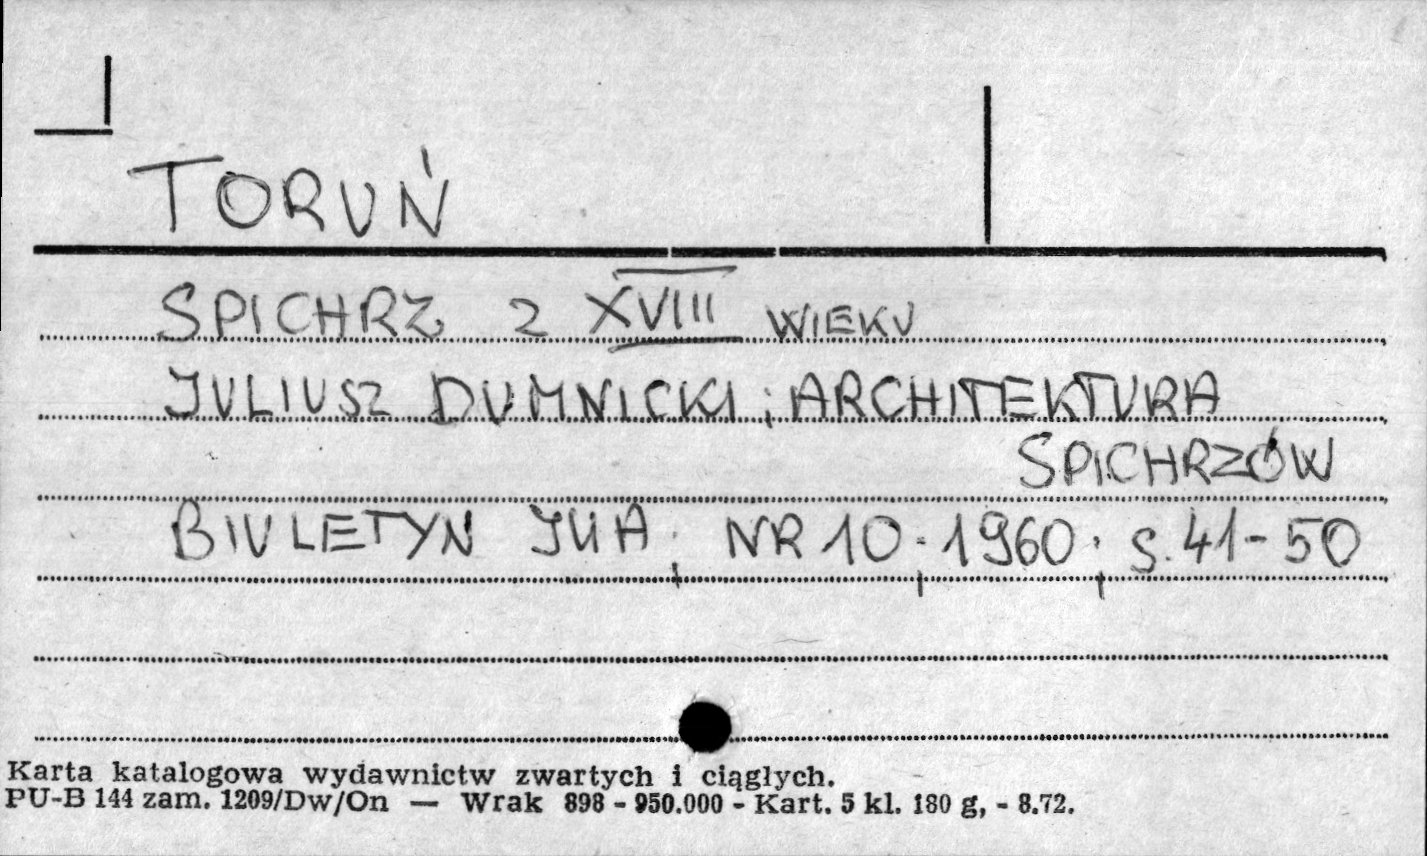 TORUŃ
SPICHRZ Z XVIII WIEKU
JULIUSZ DUMNICKI; ARCHITEKTURA
SPICHRZÓW
BIULETYN IUA, NR 10, 1960, S. 41-50
Karta katalogowa wydawnictw zwartych i ciągłych.
PU-B 144 zam. 1209/Dw/On — Wrak 898 - 950.000 - Kart. 5 kl. 180 g, - 8.72.